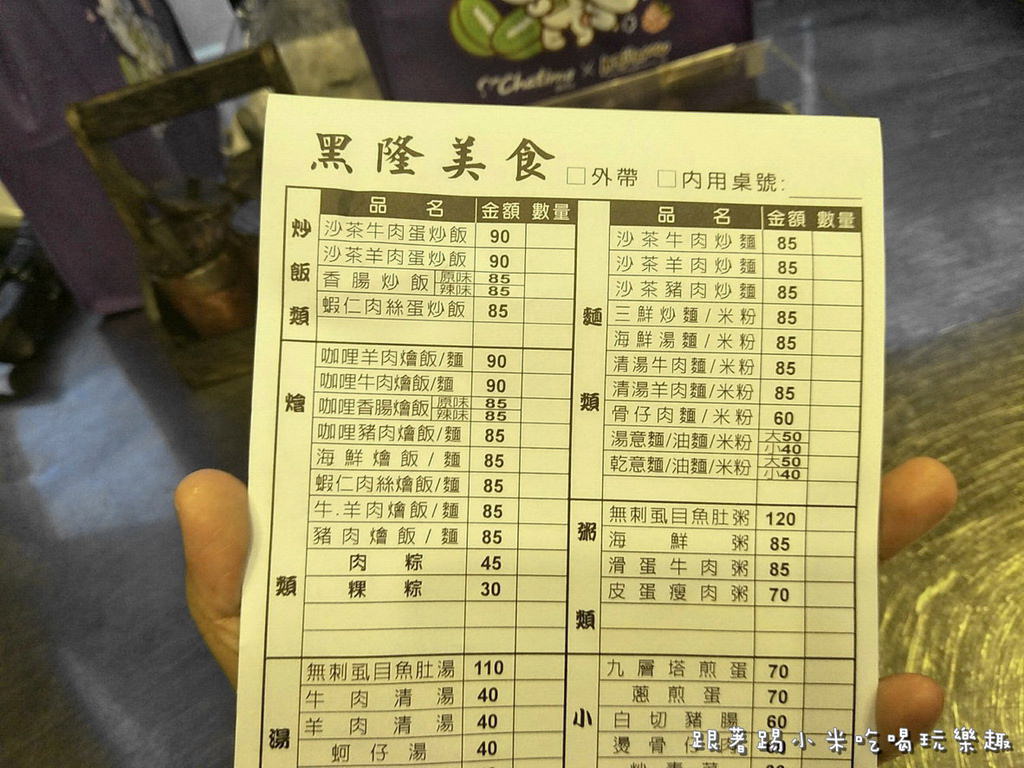 Chatime ×
黑隆美食
□外帶 □內用桌號:
炒飯類
品名 金額 數量
沙茶牛肉蛋炒飯 90
沙茶羊肉蛋炒飯 90
香腸炒飯 原味 85
辣味 85
蝦仁肉絲蛋炒飯 85
燴類
咖哩羊肉燴飯/麵 90
咖哩牛肉燴飯/麵 90
咖哩香腸燴飯 原味 85
辣味 85
咖哩豬肉燴飯/麵 85
海鮮燴飯/麵 85
蝦仁肉絲燴飯/麵 85
牛.羊肉燴飯/麵 85
豬肉燴飯/麵 85
肉粽 45
粿粽 30
湯
無刺虱目魚肚湯 110
牛肉清湯 40
羊肉清湯 40
蚵仔湯 40
麵類
品名 金額 數量
沙茶牛肉炒麵 85
沙茶羊肉炒麵 85
沙茶豬肉炒麵 85
三鮮炒麵/米粉 85
海鮮湯麵/米粉 85
清湯牛肉麵/米粉 85
清湯羊肉麵/米粉 85
骨仔肉麵/米粉 60
湯意麵/油麵/米粉 大50
小40
乾意麵/油麵/米粉 大50
小40
粥類
無刺虱目魚肚粥 120
海鮮粥 85
滑蛋牛肉粥 85
皮蛋瘦肉粥 70
小
九層塔煎蛋 70
蔥煎蛋 70
白切豬腸 60
燙骨仔肉
跟著踢小米吃喝玩樂趣